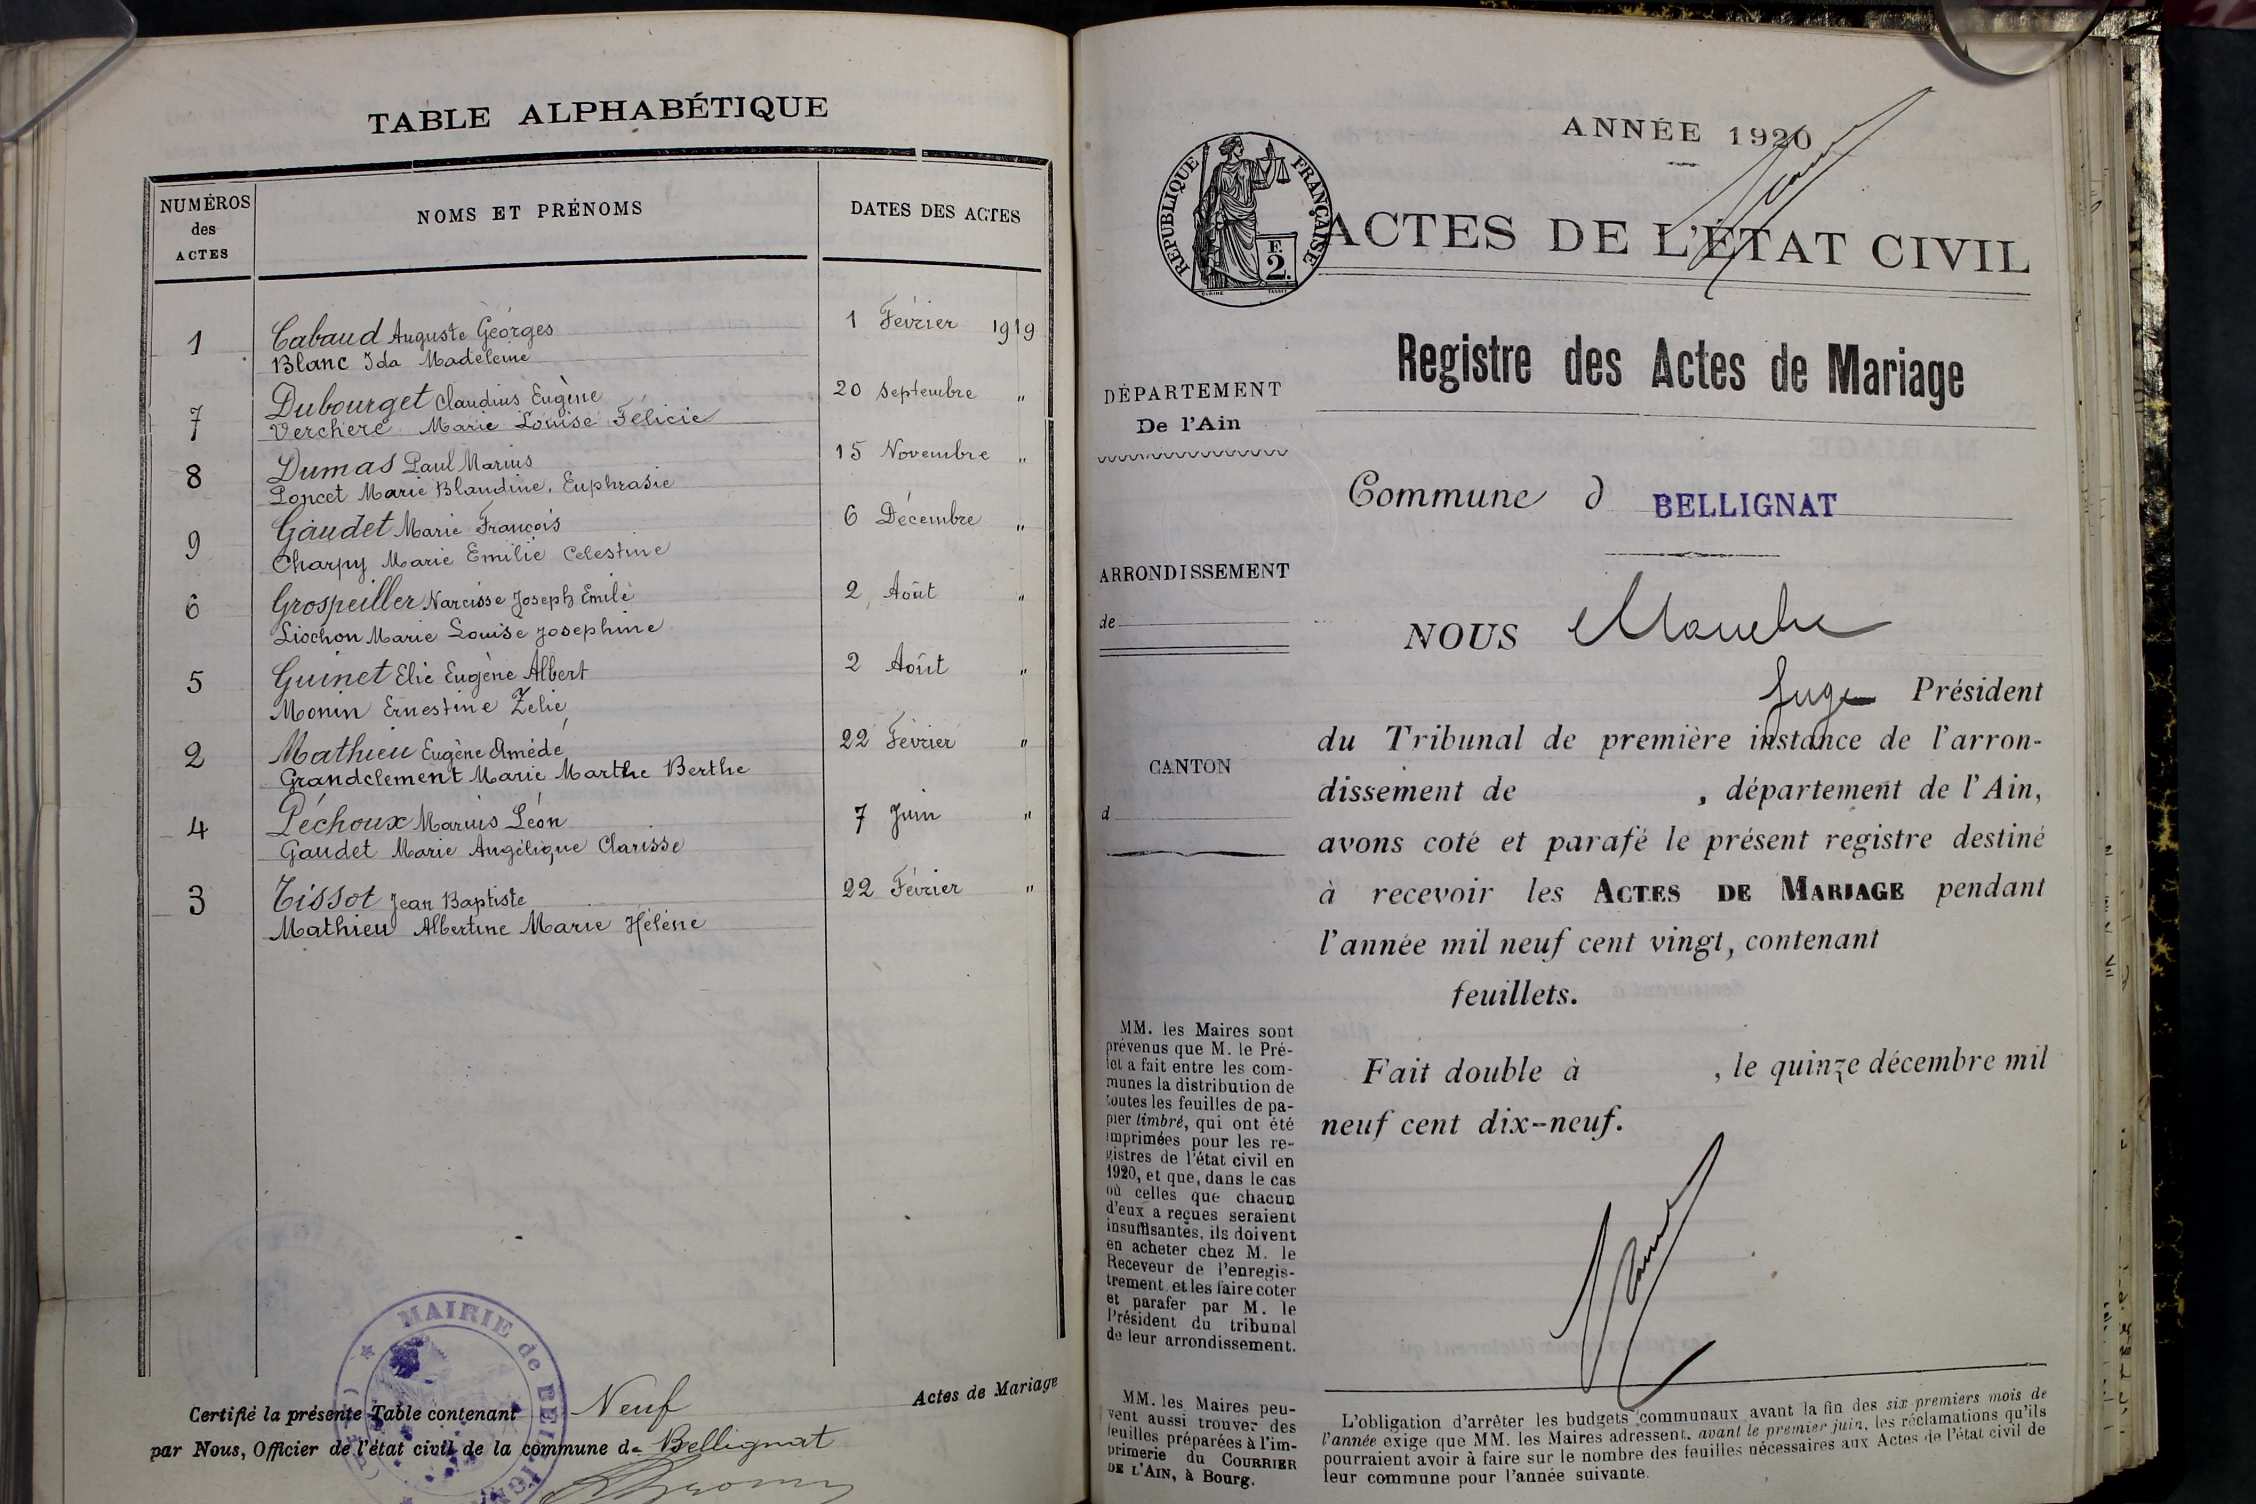 TABLE ALPHABÉTIQUE
NUMÉROS
des
ACTES
NOMS ET PRÉNOMS
DATES DES ACTES
1 Cabaud Auguste Georges 1 Février 1919
Blanc Ida Madeleine
7 Dubourget Claudius Eugène 20 Septembre "
Verchère Marie Louise Félicie
8 Dumas Paul Marius 15 Novembre "
Poncet Marie Blandine, Euphrasie
9 Gaudet Marie François 6 Décembre "
Charpy Marie Emilie Celestine
6 Grospeiller Narcisse Joseph Emile 2 Août "
Liochon Marie Louise Josephine
5 Guinet Elie Eugène Albert 2 Août "
Monin Ernestine Zélie
2 Mathieu Eugène Amédé 22 Février "
Grandclement Marie Marthe Berthe
4 Péchoux Marius Léon 7 Juin "
Gaudet Marie Angélique Clarisse
3 Tissot Jean Baptiste 22 Février "
Mathieu Albertine Marie Hélène
MAIRIE de BELLIGN
Certifié la présente Table contenant Neuf Actes de Mariage
par Nous, Officier de l'état civil de la commune de Bellignat
ANNÉE 1920
RÉPUBLIQUE FRANÇAISE
F.
2.
ACTES DE L'ÉTAT CIVIL
Registre des Actes de Mariage
DÉPARTEMENT
De l'Ain
Commune d BELLIGNAT
ARRONDISSEMENT
de
CANTON
d
NOUS
Juge Président
du Tribunal de première instance de l'arron-
dissement de , département de l'Ain,
avons coté et parafé le présent registre destiné
à recevoir les ACTES DE MARIAGE pendant
l'année mil neuf cent vingt, contenant
feuillets.
Fait double à , le quinze décembre mil
neuf cent dix-neuf.
MM. les Maires sont
prévenus que M. le Pré-
fet a fait entre les com-
munes la distribution de
toutes les feuilles de pa-
pier timbré, qui ont été
imprimées pour les re-
gistres de l'état civil en
1920, et que, dans le cas
où celles que chacun
d'eux a reçues seraient
insuffisantes, ils doivent
en acheter chez M. le
Receveur de l'enregis-
trement et les faire coter
et parafer par M. le
Président du tribunal
de leur arrondissement.
MM. les Maires peu-
vent aussi trouver des
feuilles préparées à l'im-
primerie du COURRIER
DE L'AIN, à Bourg.
L'obligation d'arrêter les budgets communaux avant la fin des six premiers mois de
l'année exige que MM. les Maires adressent, avant le premier juin, les réclamations qu'ils
pourraient avoir à faire sur le nombre des feuilles nécessaires aux Actes de l'état civil de
leur commune pour l'année suivante.